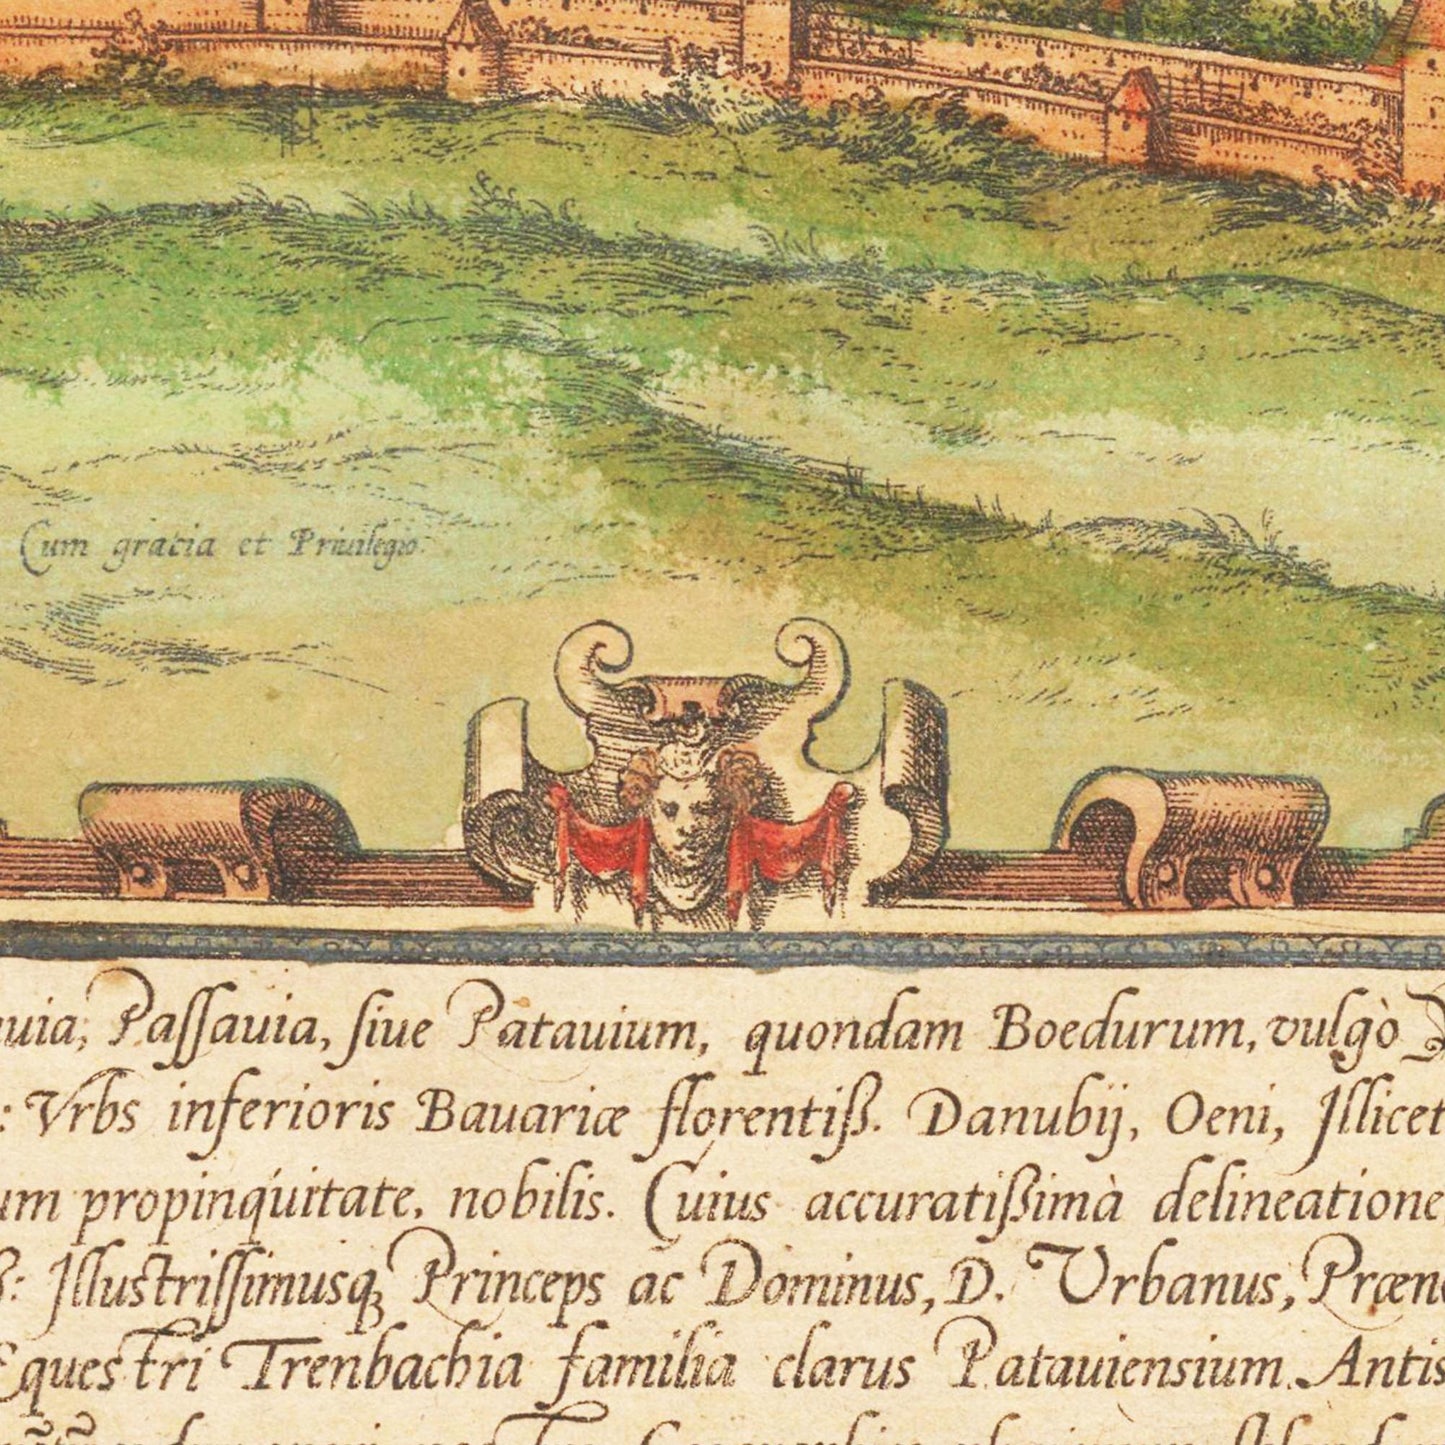 Cum gratia et Priuilegio.
Passauia, siue Patauium, quondam Boedurum, vulgò
: Vrbs inferioris Bauariæ florentiß. Danubij, Oeni, Illicet
propinquitate, nobilis. Cuius accuratißimà delineatione
Illustrissimusq Princeps ac Dominus, D. Vrbanus,
Equestri Trenbachia familia clarus Patauiensium Antis